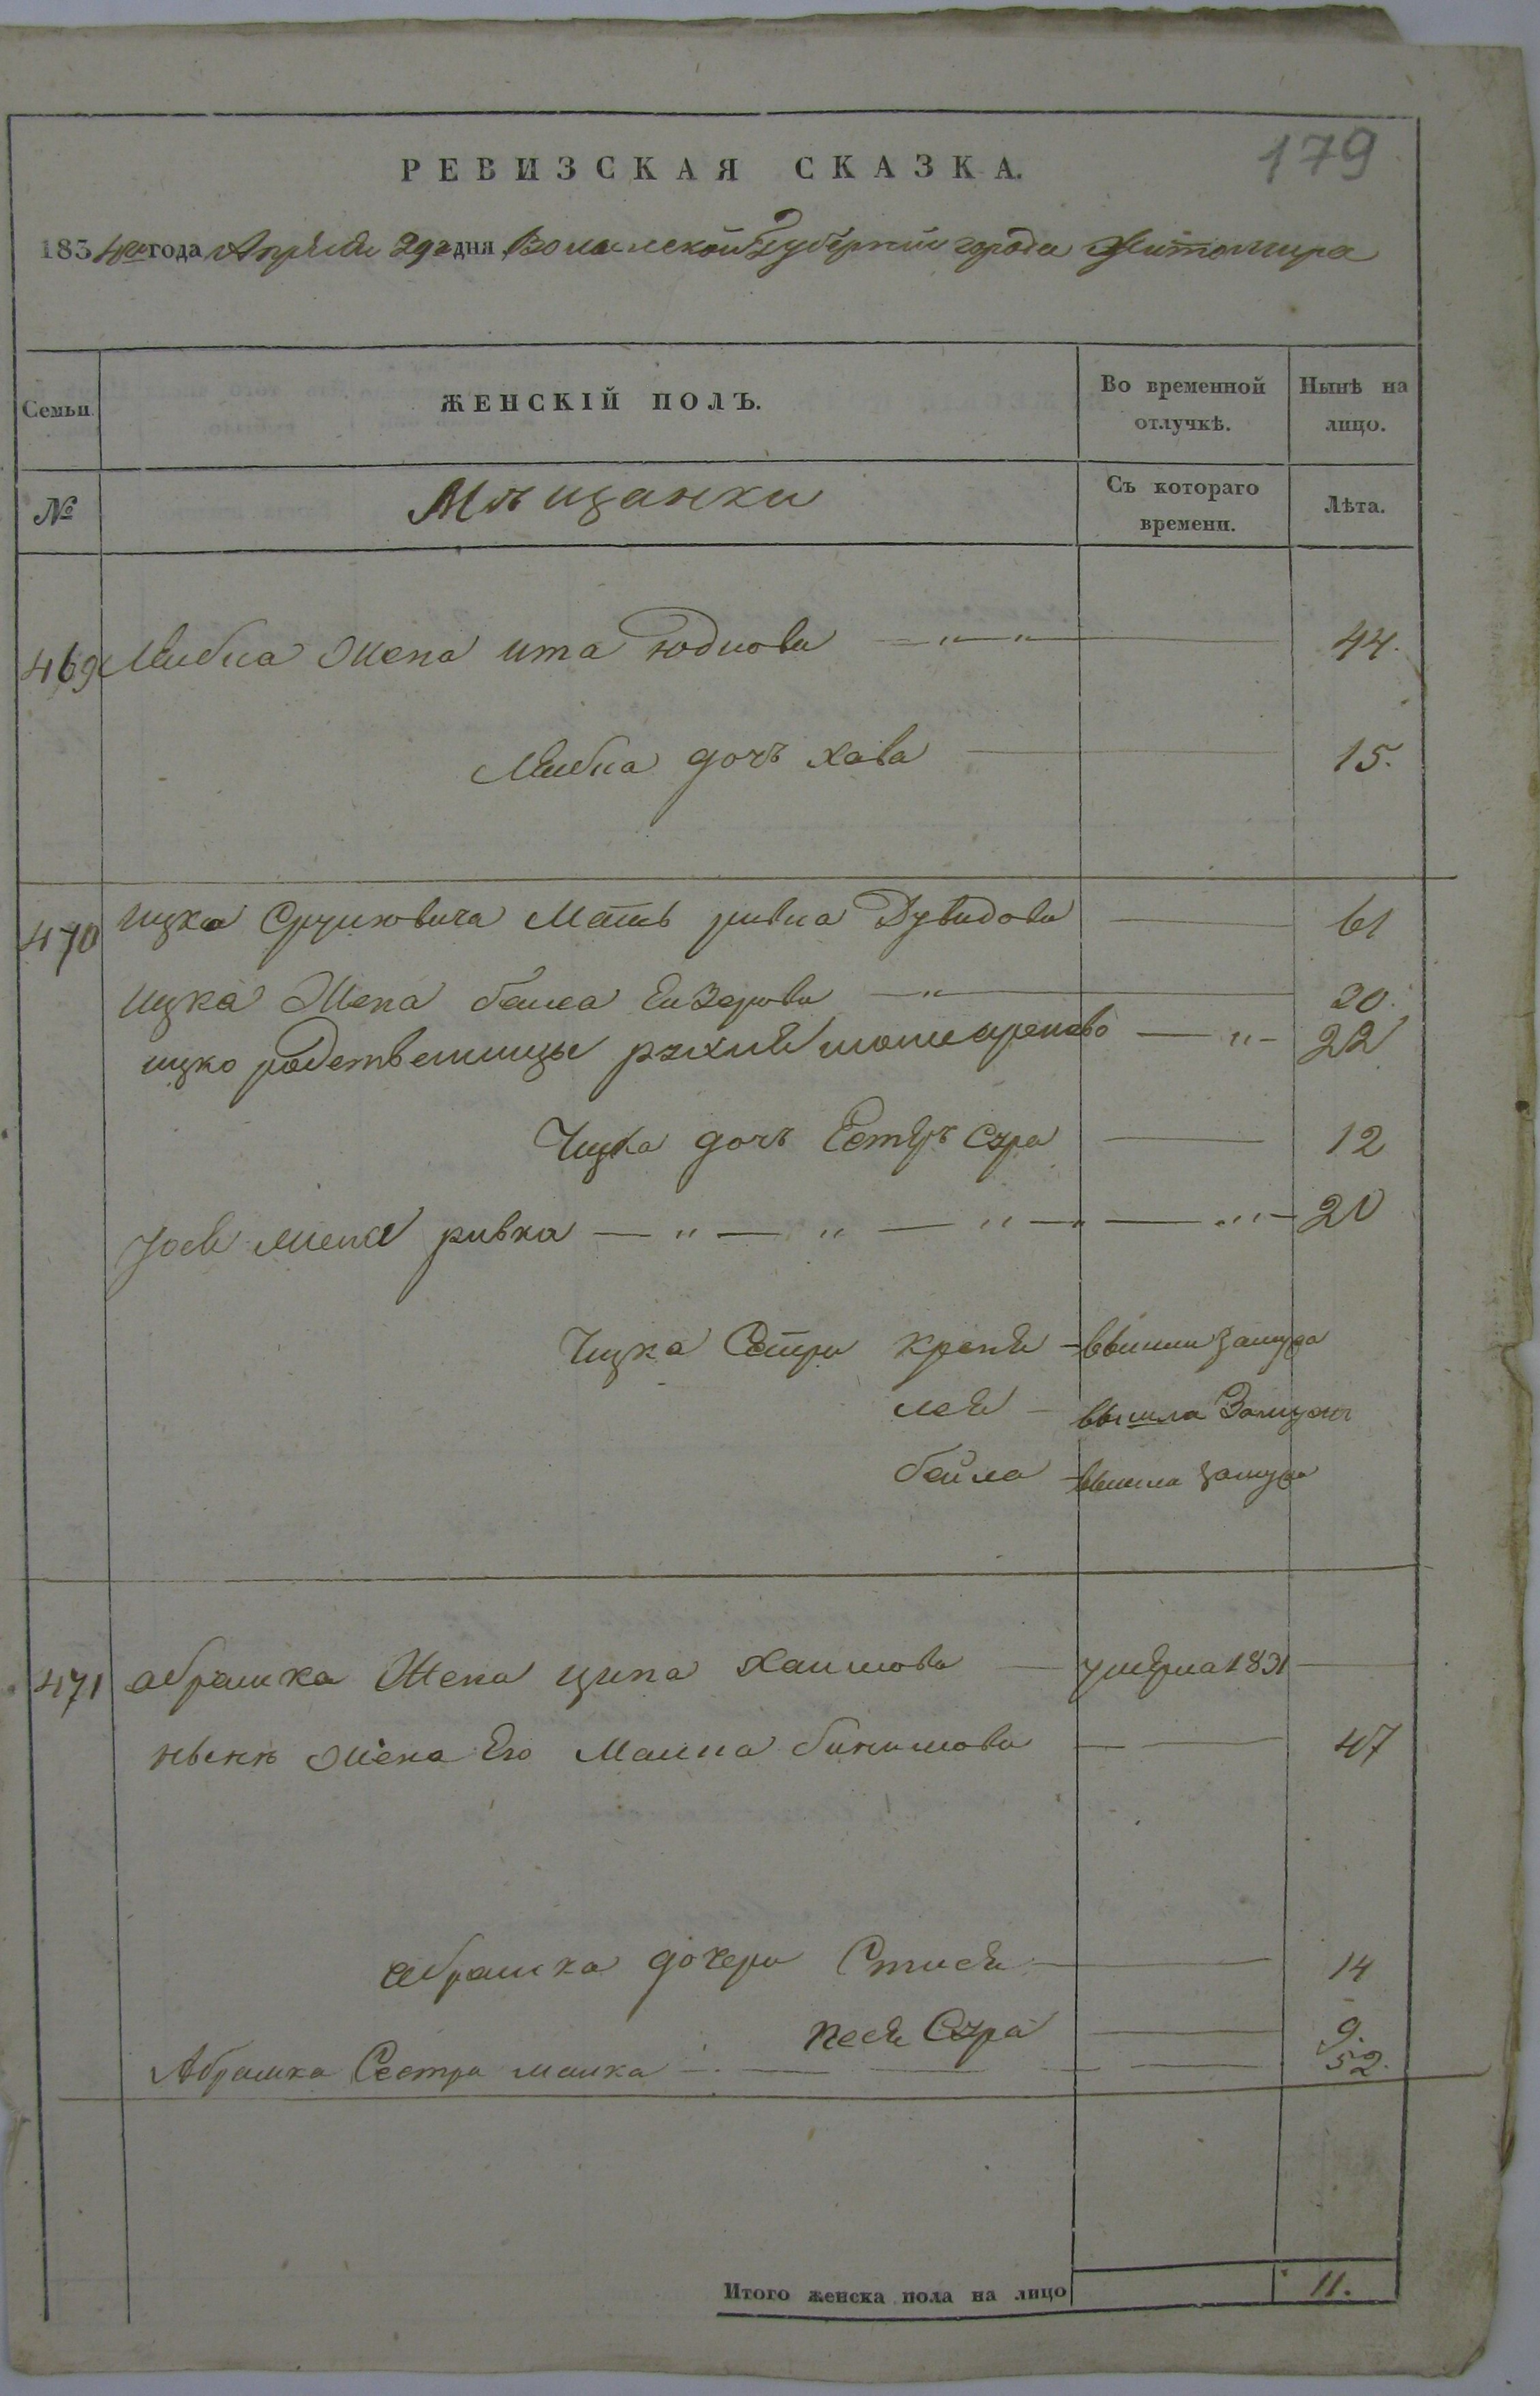 179
РЕВИЗСКАЯ СКАЗКА.
1834го года Апреля 29го дня Волынской Губернии города Житомира
Семьи
ЖЕНСКІЙ ПОЛЪ.
Во временной отлучкѣ.
Нынѣ на лицо.
№
Мѣщанки
Съ котораго времени.
Лѣта.
469 Лейбка Жена ита 44.
Лейбка дочъ хава 15.
470 ицка Мать ривка Дувидова 61
ицка Жена бейла 20.
ицко родственницы рухля 22
Ицка дочъ Естеръ Сура 12
жена ривка 20
Ицка Сестри креня вышли замужъ
лея вышла Замужъ
бейла вышла замужъ
471 абрамка Жена ципа Хаимова умерла 1831
нынѣ жена Его Малка 47
абрамка дочери 14
песя Сура 9.
Абрамка Сестра малка 52.
Итого женска пола на лицо 11.